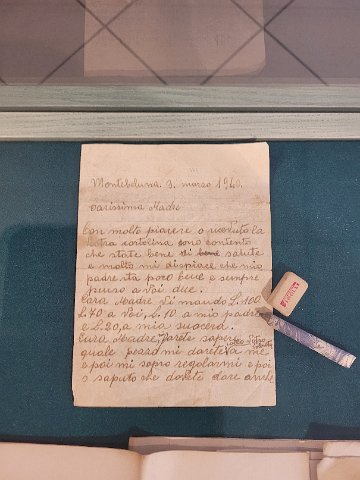 Montebelluna 3. marzo 1940.
Carissima Madre
Con molto piacere o ricevuto la
vostra cartolina sono contento
che state bene di bene salute
e molto mi dispiace che mio
padre sta poco bene e sempre
penso a Voi due.
Cara Madre Vi mando L. 100
L. 70 a Voi, L. 10. a mio padre
e L. 20, a mia suocera.
Cura Madre, Farete sapere
quale pezzo mi darete a me
e poi mi sopro regolarmi e poi
o saputo che dovete dare anche